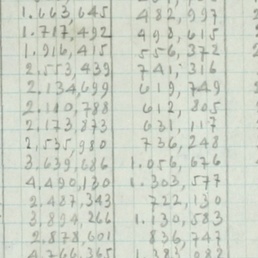 1.663,645 482,997
1.717,492 498,615
1.916,415 556,372
2,553,439 741,316
2,134,699 619,749
2,110,788 612,805
2,173,873 631,117
2,535,980 736,248
3,639,686 1.056,676
4,490,130 1.303,577
2,487,343 722,130
3,894,266 1.130,583
2,878,601 836,747
4,766,365 1,383,982